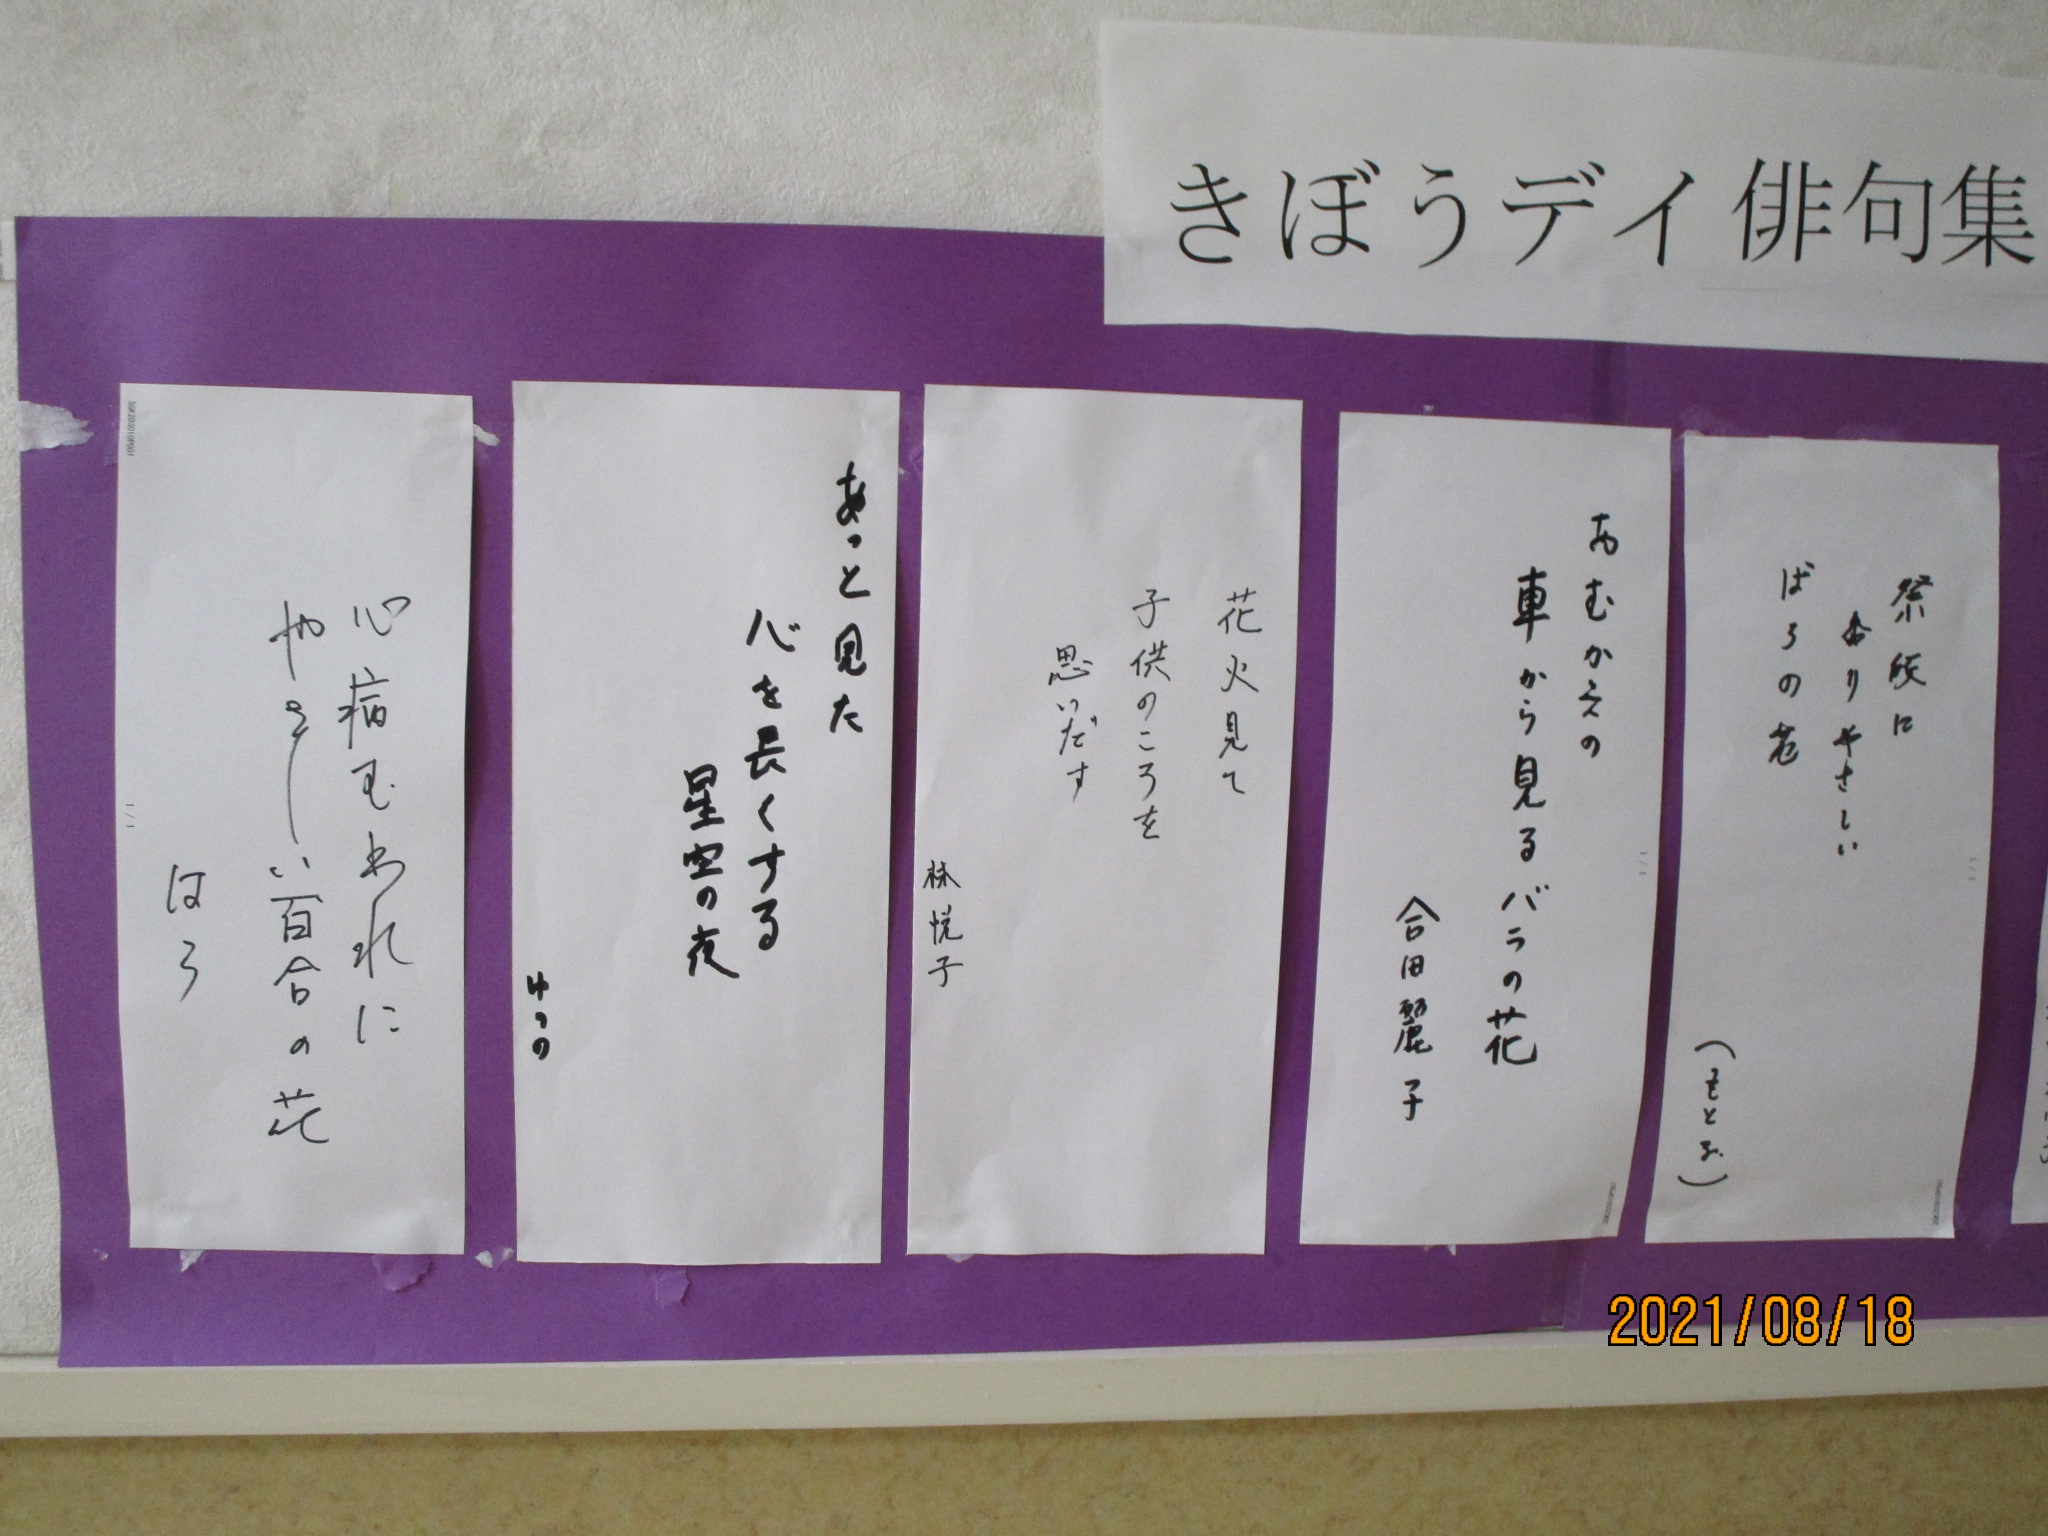 きぼうデイ俳句集
祭典に
ありやさしい
ばらの花
(もとお)
おむかえの
車から見るバラの花
合田麗子
花火見て
子供のころを
思いだす
林悦子
あっと見た
心を長くする
星空の夜
ゆうの
心病むわれに
やさしい百合の花
はろ
2021/08/18